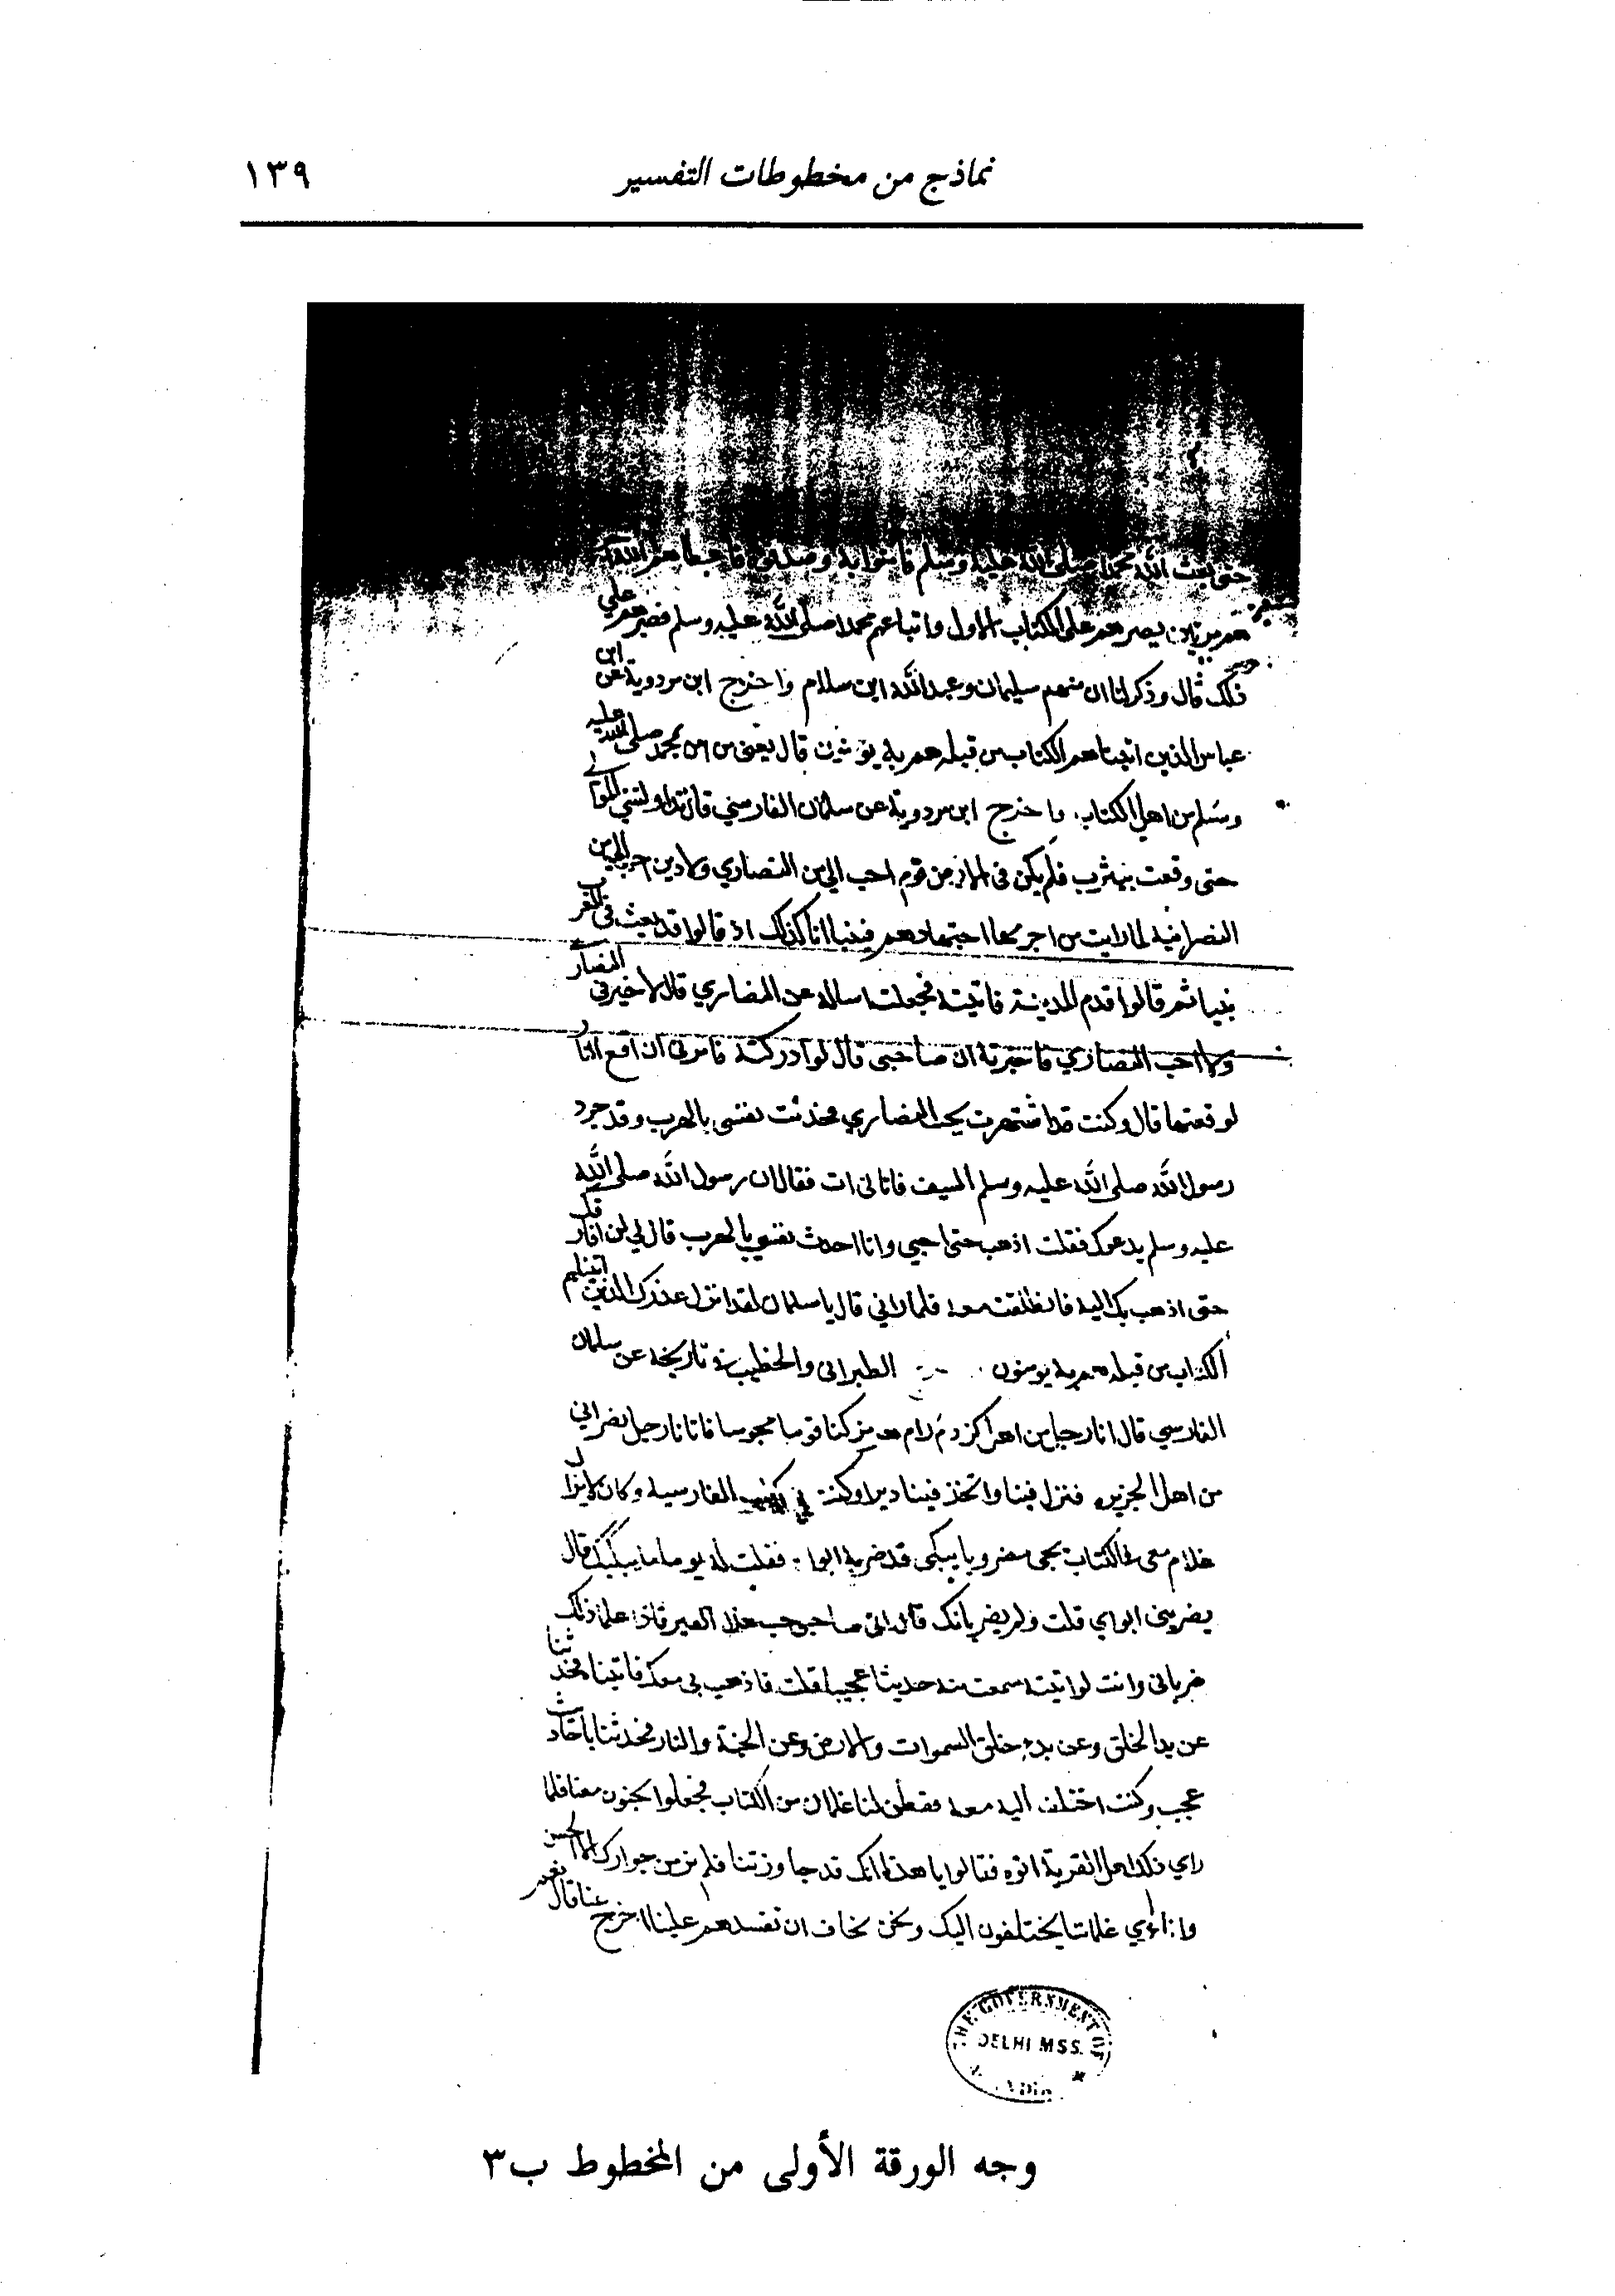 نماذج من مخطوطات التفسير ١٣٩
حتى بعث الله محمدا صلى الله عليه وسلم فامنوا به وصدقوه فاعطاهم الله
مرتين بصبرهم على الكتاب الاول واتباعهم محمدا صلى الله عليه وسلم وصبرهم على
ذلك قال وذكر لنا ان منهم سليمان وعبد الله ابن سلام واخرج ابن مردوية عن ابن
عباس الذين اتيناهم الكتاب من قبله هم به يومنون قال يعنى من امن بمحمد صلى الله عليه
وسلم من اهل الكتاب. واخرج ابن مردوية عن سلمان الفارسي قال تداولتنى الموالي
حتى وقعت بيثرب فلم يكن فى الارض قوم احب الي من النصاري ولا دين احب الي من
النصرانية لما رايت من اجتهادهم فبينا انا كذلك اذ قالوا قد بعث فى العرب
نبيا ثم قالوا قدم المدينة فاتيته فجعلت اساله عن النصاري قال لا خير فى النصارى
ولا احب النصاري فاخبرته ان صاحبى قال لو ادركته فامرنى ان اقع النار
لوقعتها قال وكنت قد اشتهرت بحب النصاري فحدثت نفسى بالهرب وقد جرد
رسول الله صلى الله عليه وسلم السيف فاتانى ات فقال ان رسول الله صلى الله
عليه وسلم يدعوك فقلت اذهب حتى اجي وانا احدث نفسي بالهرب قال لي لن افارقك
حتى اذهب بك اليه فانطلقت معه فلما راني قال يا سلمان لقد انزل عذرك الذين اتينهم
الكتاب من قبله هم به يومنون الطبرانى والخطيب فى تاريخه عن سلمان
الفارسي قال انا رجل من اهل رام هرمز كنا قوما مجوسا فاتانا رجل نصراني
من اهل الجزيرة فنزل فينا واتخذ فينا ديرا وكنت فى الفارسية وكان لا يزال
غلام معى فى الكتاب يجى مضروبا يبكى قد ضربه ابواه فقلت له يوما ما يبكيك قال
يضربنى ابواي قلت ولم يضربانك قال اتى صاحب هذا الدير فاذا علما ذلك
ضربانى وانت لو اتيته سمعت منه حديثا عجيبا قلت فاذهب بى معك فاتيناه فحدثنا
عن بدا الخلق وعن بدء خلق السموات والارض وعن الجنة والنار فحدثنا باحاديث
عجب وكنت اختلف اليه معه ففطن لنا غلمان من الكتاب فجعلوا يجئون معنا فلما
راي ذلك اهل القرية اتوه فقالوا يا هذا انك قد جاورتنا فلم نر من جوارك الا الحسن
وانا نرى غلماننا يختلفون اليك ونحن نخاف ان تفسدهم علينا اخرج عنا قال نعم
THE GOVERNMENT OF
DELHI MSS.
INDIA
وجه الورقة الأولى من المخطوط ب٣